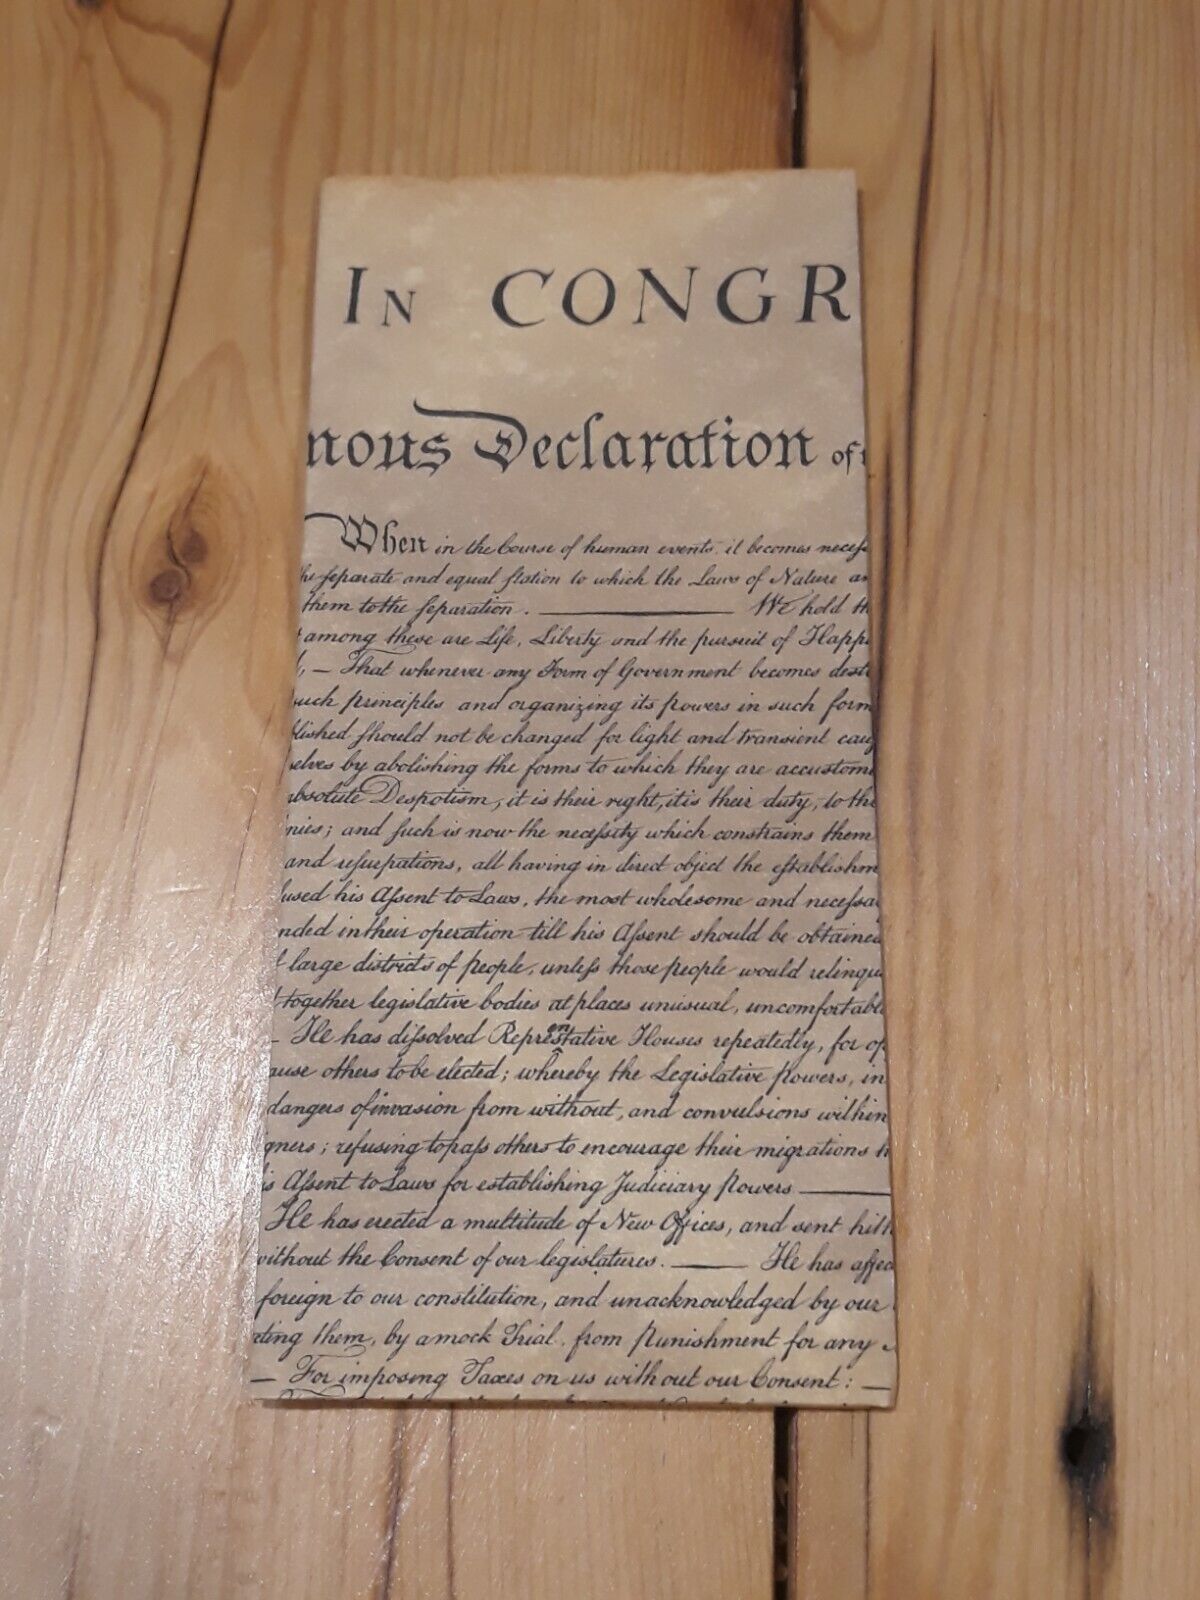 In CONGR
nous Declaration of t
When in the Course of human events, it becomes necess
he separate and equal station to which the Laws of Nature an
them to the separation. — We hold th
t among these are Life, Liberty and the pursuit of Happi
d, — That whenever any Form of Government becomes destr
such principles and organizing its powers in such form
blished should not be changed for light and transient cau
selves by abolishing the forms to which they are accustome
absolute Despotism, it is their right, it is their duty, to thr
nies; and such is now the necessity which constrains them
and usurpations, all having in direct object the establishm
fused his Assent to Laws, the most wholesome and necessa
nded in their operation till his Assent should be obtained
f large districts of people, unless those people would relinqu
d together legislative bodies at places unusual, uncomfortabl
— He has dissolved Representative Houses repeatedly, for op
ause others to be elected; whereby the Legislative powers, in
dangers of invasion from without, and convulsions within
igners; refusing to pass others to encourage their migrations h
is Assent to Laws for establishing Judiciary powers —
He has erected a multitude of New Offices, and sent hith
without the Consent of our legislatures. — He has affec
foreign to our constitution, and unacknowledged by our
cting them, by a mock Trial, from punishment for any
— For imposing Taxes on us without our Consent: —